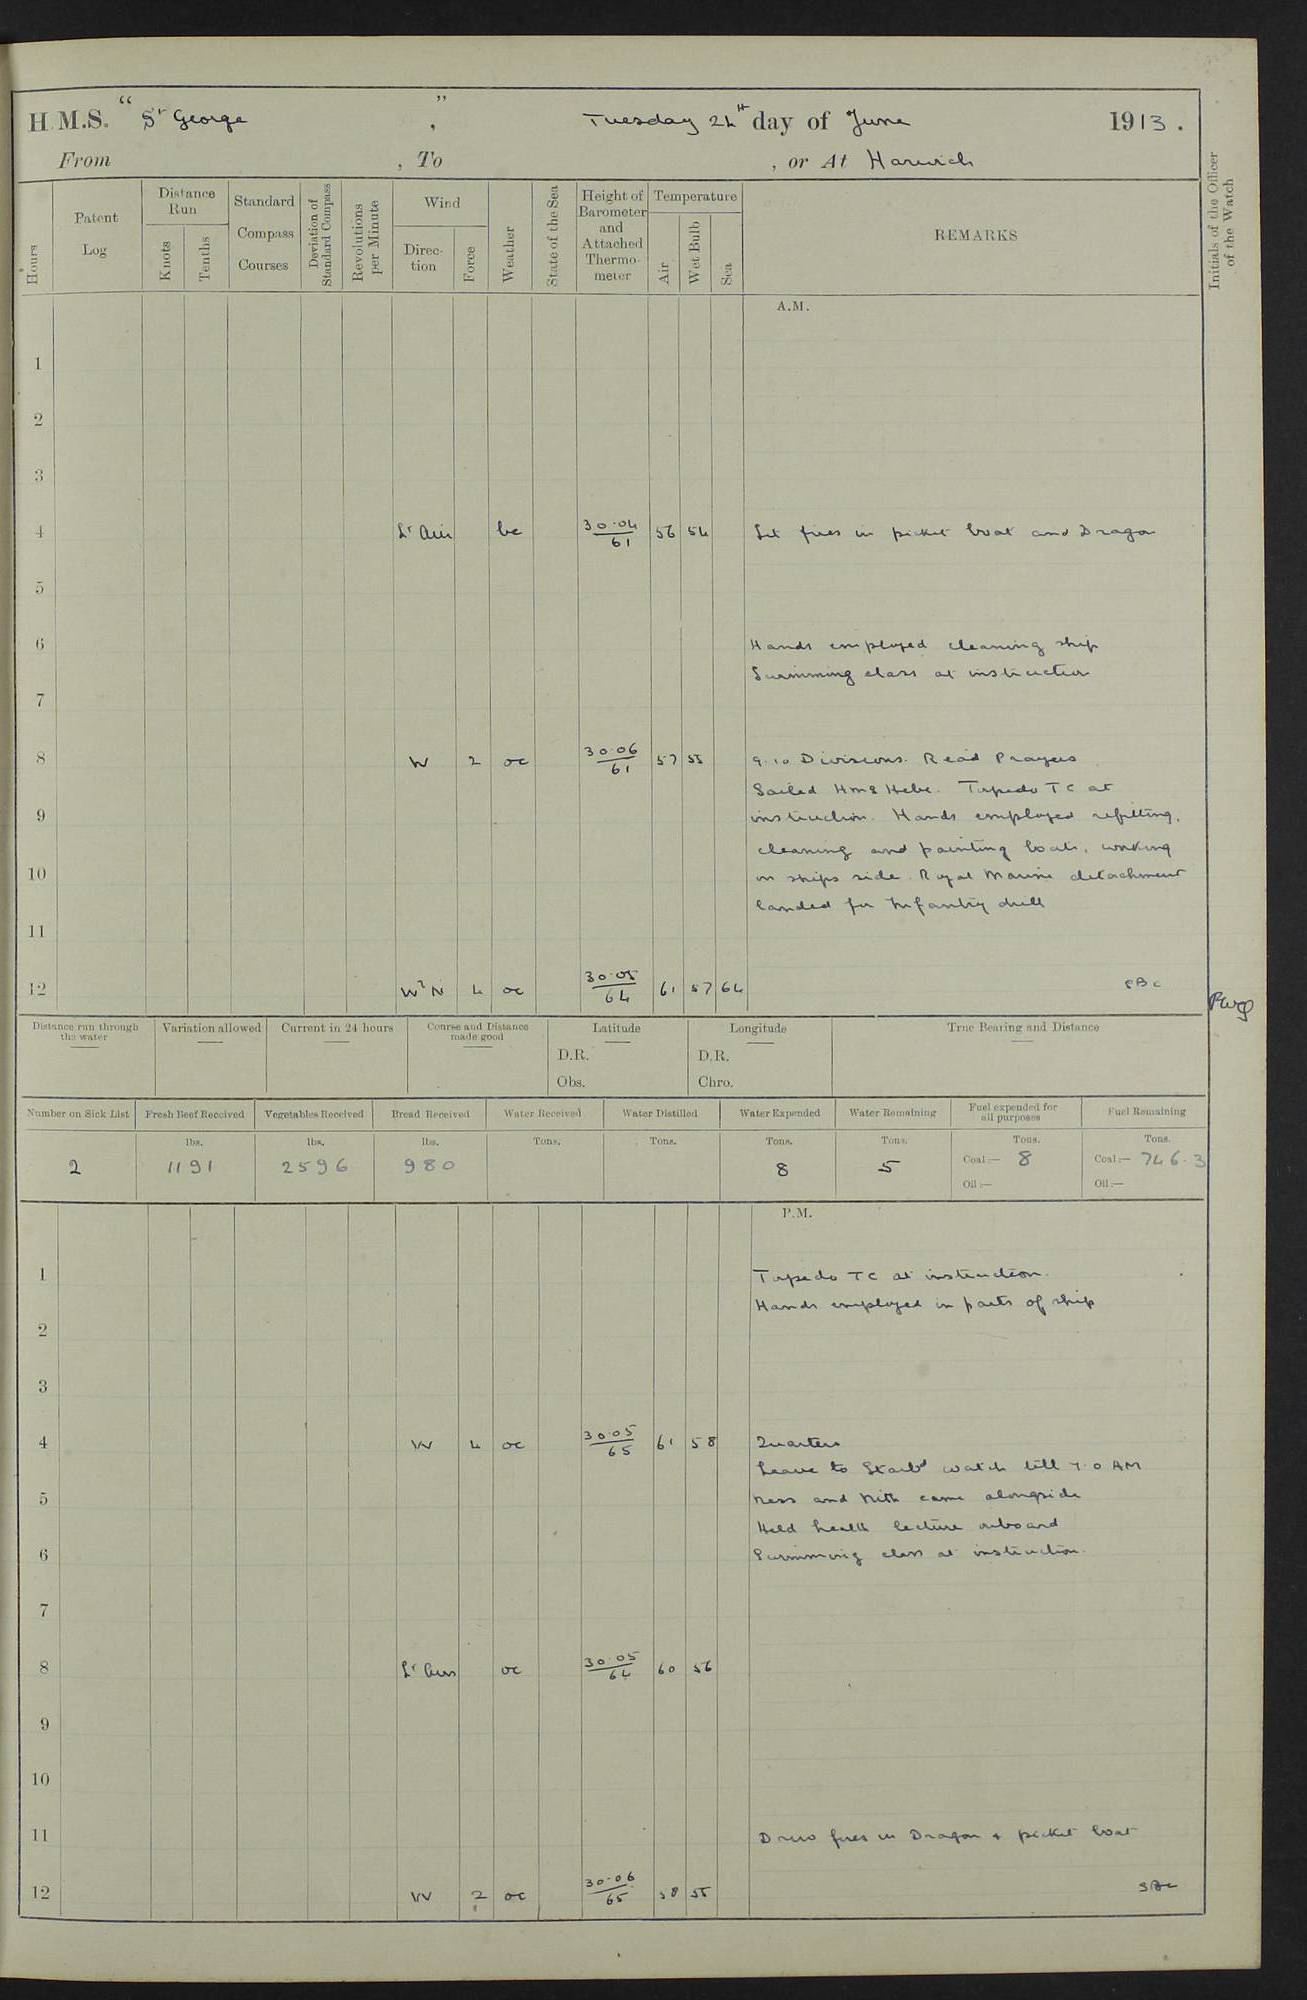 H.M.S. "St George", Tuesday 24th day of June 1913.
From , To , or At Harwich
Hours
Patent Log
Distance Run
Knots
Tenths
Standard Compass Courses
Deviation of Standard Compass
Revolutions per Minute
Wind
Direction
Force
Weather
State of the Sea
Height of Barometer and Attached Thermometer
Temperature
Air
Wet Bulb
Sea
REMARKS
Initials of the Officer of the Watch
A.M.
1
2
3
4 Lt Airs bc 30.04/61 56 54 Lit fires in picket boat and Dragon
5
6 Hands employed cleaning ship
Swimming class at instruction
7
8 W 2 oc 30.06/61 57 55 9.10 Divisions. Read Prayers
Sailed HMS Hebe. Torpedo TC at
9 instruction. Hands employed refitting,
cleaning and painting boats, working
10 on ships side. Royal Marine detachment
landed for Infantry drill
11
12 WN 4 oc 30.05/64 61 57 64
Distance run through the water
Variation allowed
Current in 24 hours
Course and Distance made good
Latitude
D.R.
Obs.
Longitude
D.R.
Chro.
True Bearing and Distance
Number on Sick List
Fresh Beef Received
Vegetables Received
Bread Received
Water Received
Water Distilled
Water Expended
Water Remaining
Fuel expended for all purposes
Fuel Remaining
lbs. lbs. lbs. Tons. Tons. Tons. Tons. Tons. Tons.
2 1191 2596 980 8 5 Coal:— 8 Coal:— 746.3
Oil:— Oil:—
P.M.
1 Torpedo TC at instruction.
Hands employed in parts of ship
2
3
4 W 4 oc 30.05/65 61 58 Quarters
Leave to Starbd watch till 7.0 AM
5 Ness and Nith came alongside
Held health lecture onboard
6 Swimming class at instruction.
7
8 Lt Airs oc 30.05/64 60 56
9
10
11 Drew fires in Dragon + picket boat
12 W 2 oc 30.06/65 58 55